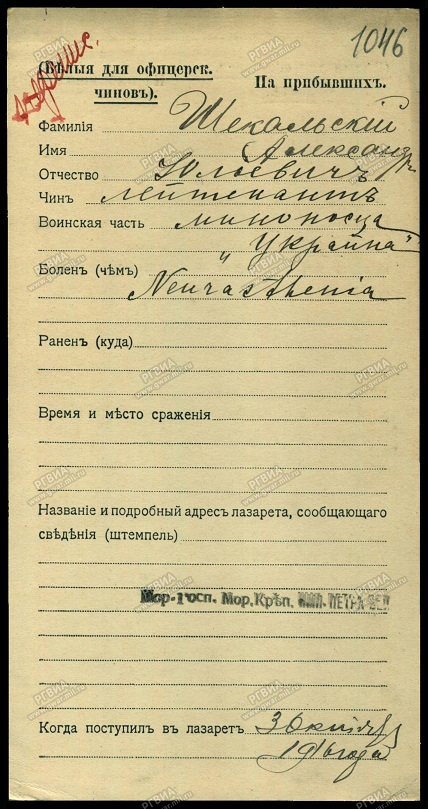 1046
(Бѣлыя для офицерск. чиновъ).
На прибывшихъ.
Фамилія Шекальскій
Имя Александр
Отчество Юльевичъ
Чинъ лейтенантъ
Воинская часть миноносца
„Украйна“
Боленъ (чѣмъ)
Neurasthenia
Раненъ (куда)
Время и мѣсто сраженія
Названіе и подробный адресъ лазарета, сообщающаго
свѣдѣнія (штемпель)
Мор. Госп. Мор. Крѣп. ИМП. ПЕТРА ВЕЛ
Когда поступилъ въ лазаретъ 3 октября
1916 года
РГВИА
www.gwar.mil.ru